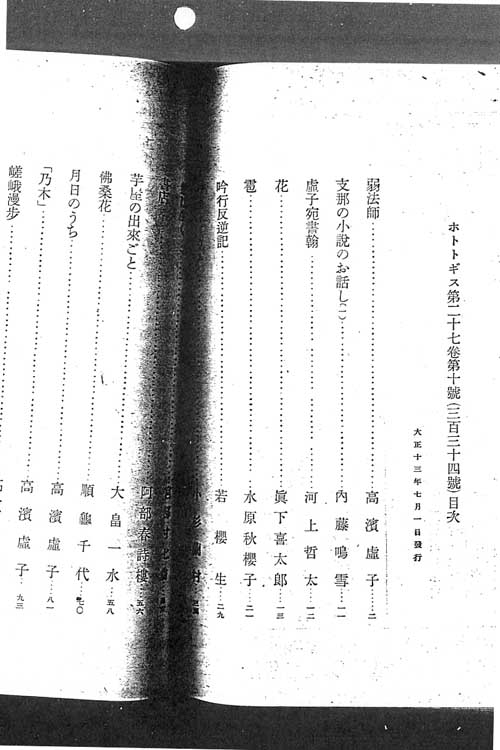 ホトトギス第二十七卷第十號(三百三十四號)目次
大正十三年七月一日發行
弱法師……高濱虛子…二
支那の小說のお話し(一)……內藤鳴雪…一一
虛子宛書翰……河上哲太…一二
花……眞下喜太郎…一三
雹……水原秋櫻子…二一
吟行反逆記……若櫻生…二九
芋屋の出來ごと……阿部春詩樓…五六
佛桑花……大畠一水…五八
月日のうち……順龜千代…七〇
「乃木」……高濱虛子…八一
嵯峨漫步……高濱虛子…九三